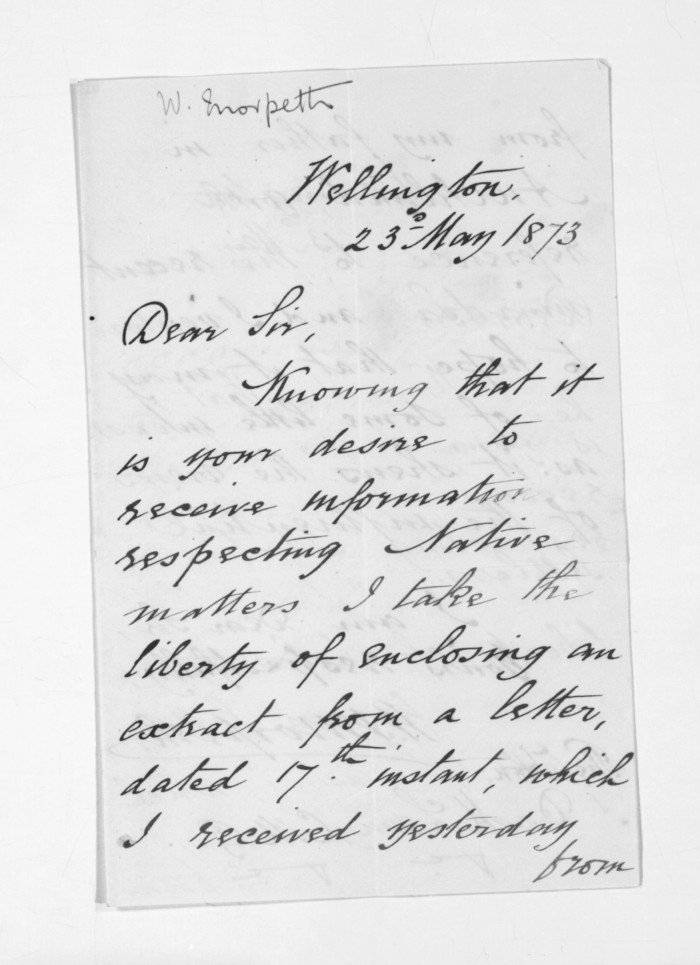 W. Morpeth
Wellington.
23d May 1873
Dear Sir,
Knowing that it
is your desire to
receive information
respecting Native
matters I take the
liberty of enclosing an
extract from a letter,
dated 17th instant, which
I received yesterday
from